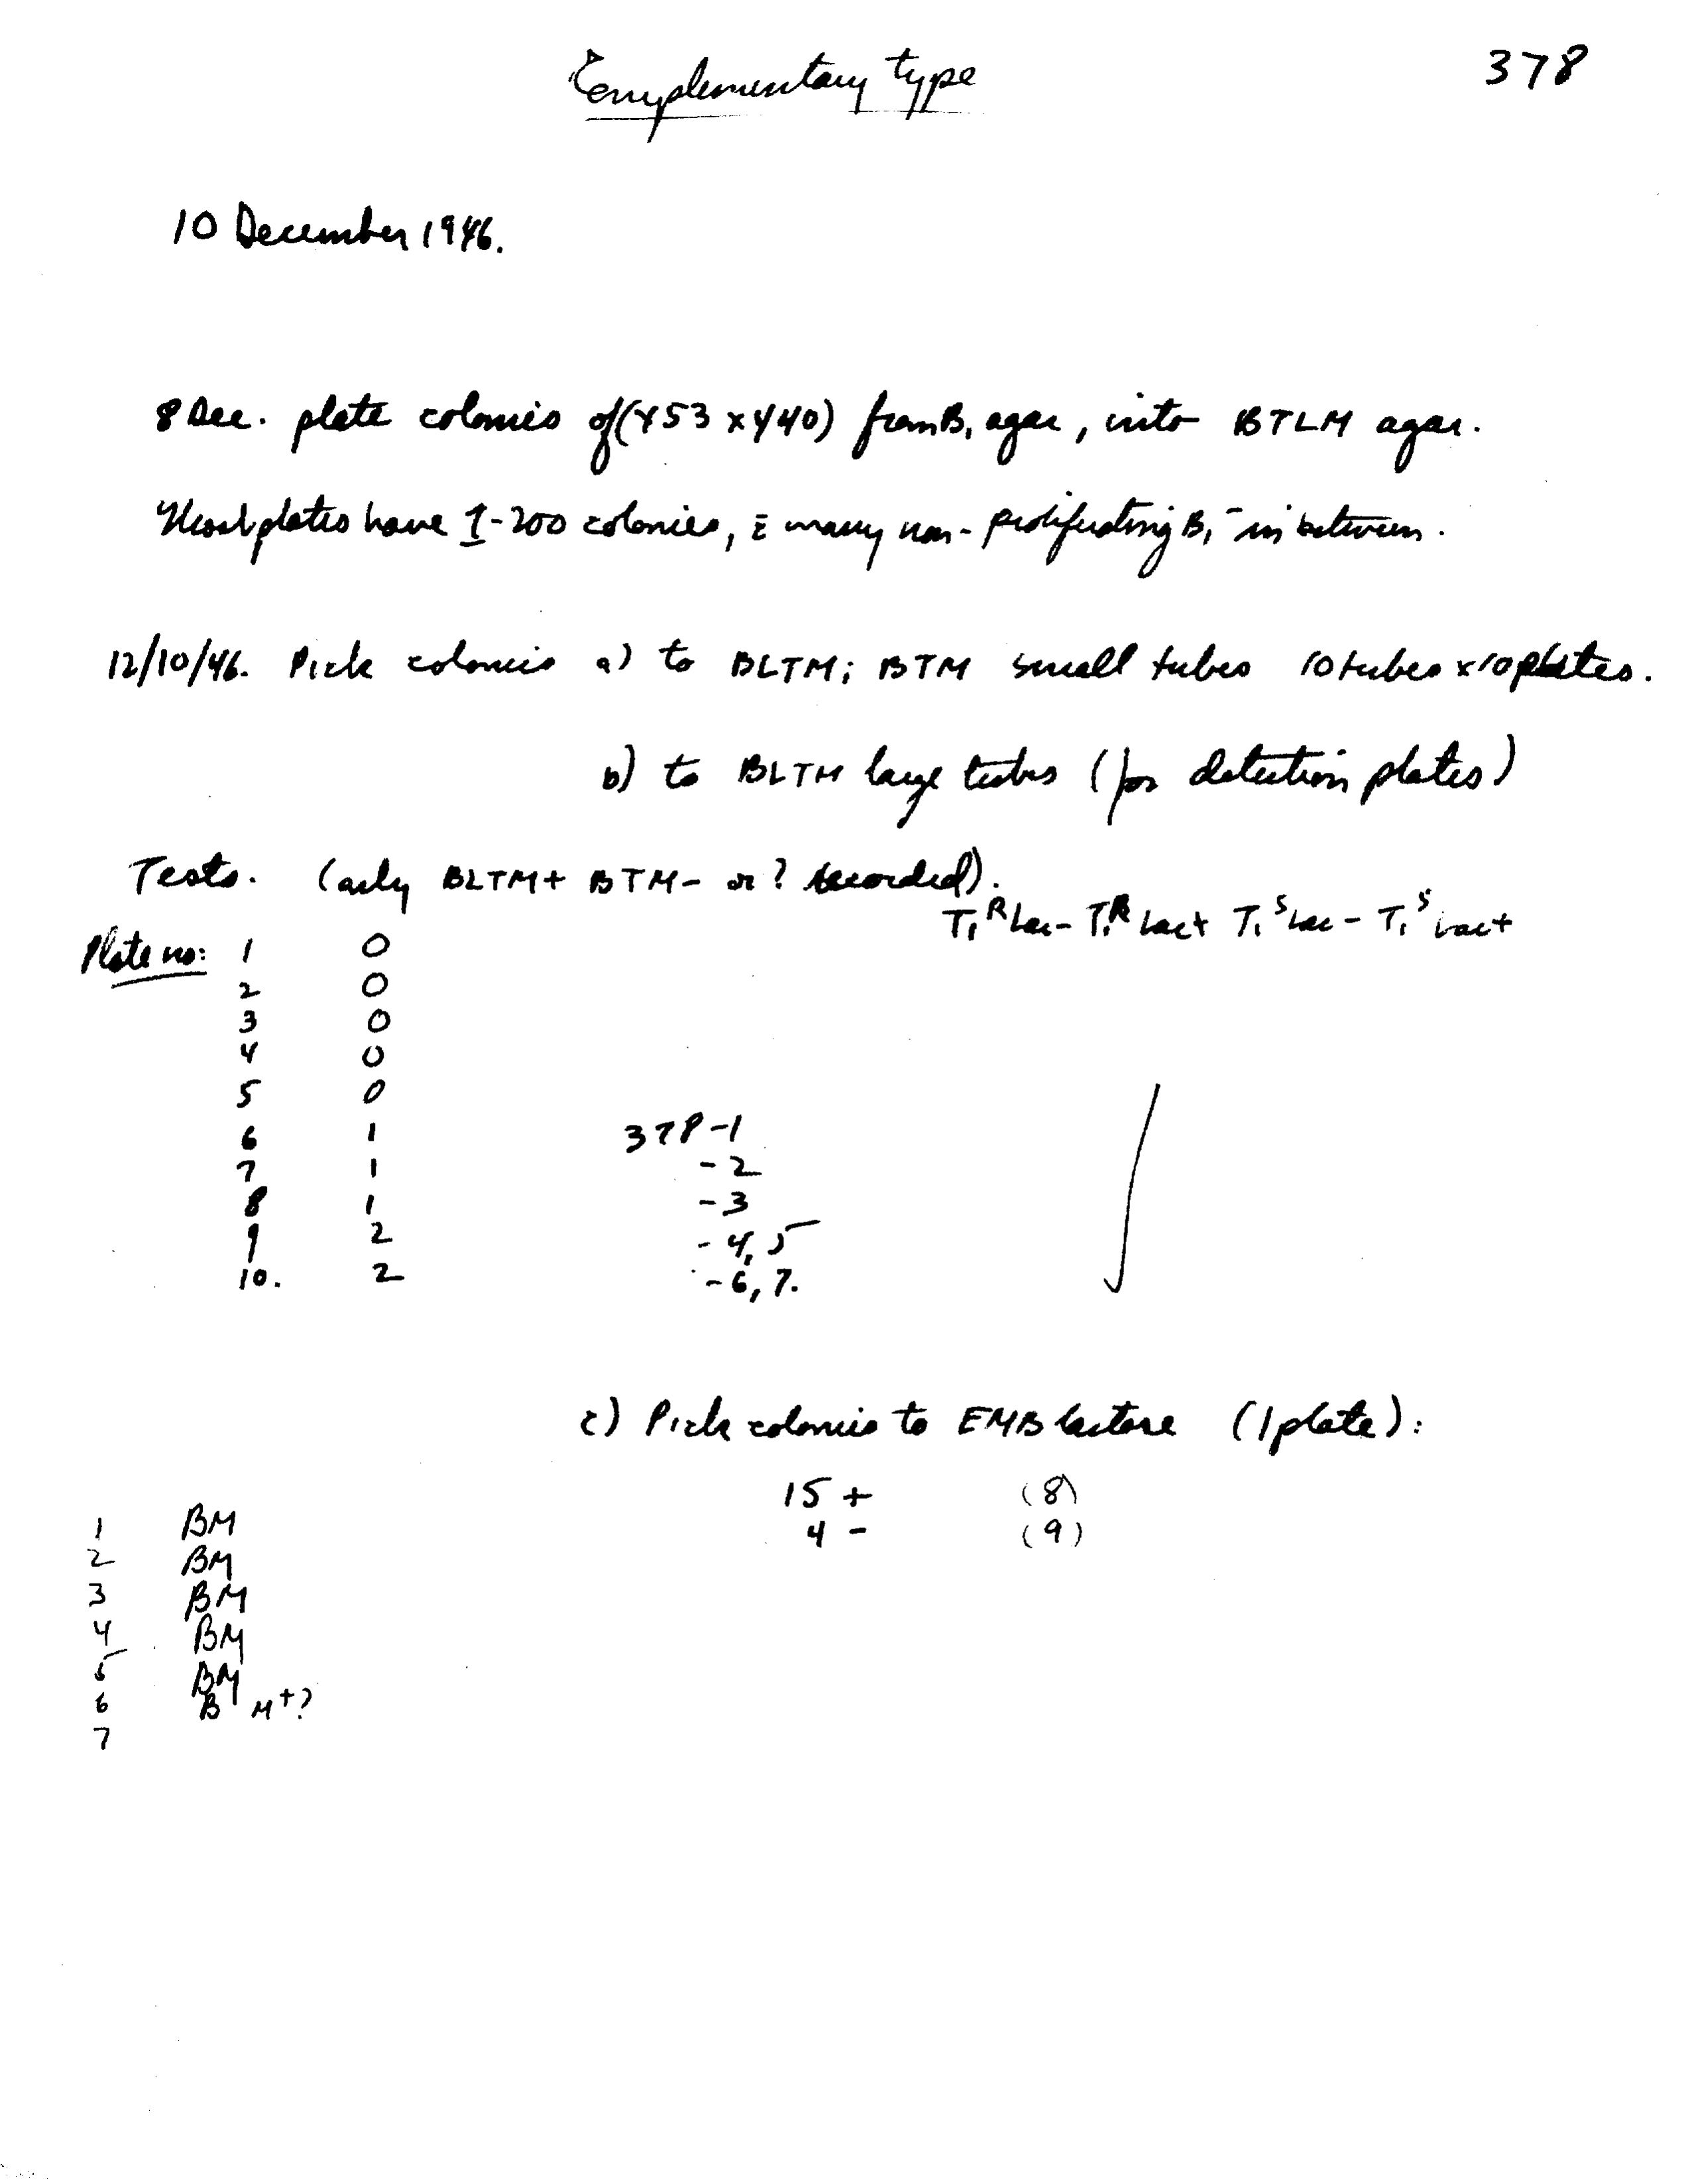 Complementary type 378
10 December 1946.
8 Dec. plate colonies of (Y53 x Y40) from B₁ agar, into BTLM agar.
Most plates have 1-200 colonies, c̄ many non-proliferating B₁⁻ in between.
12/10/46. Pick colonies a) to BLTM; BTM small tubes 10 tubes x 10 plates.
b) to BLTM large tubes (for detection plates)
Tests. (only BLTM+ BTM- or ? recorded).
T₁ᴿ Lac- T₁ᴿ Lac+ T₁ˢ Lac- T₁ˢ Lac+
Plate no: 1 0
2 0
3 0
4 0
5 0
6 1 378-1
7 1 -2
8 1 -3
9 2 -4, 5
10. 2 -6, 7.
c) Pick colonies to EMB lactose (1 plate):
15 + (8)
4 - (9)
1 BM
2 BM
3 BM
4 BM
5 BM
6 B M+?
7